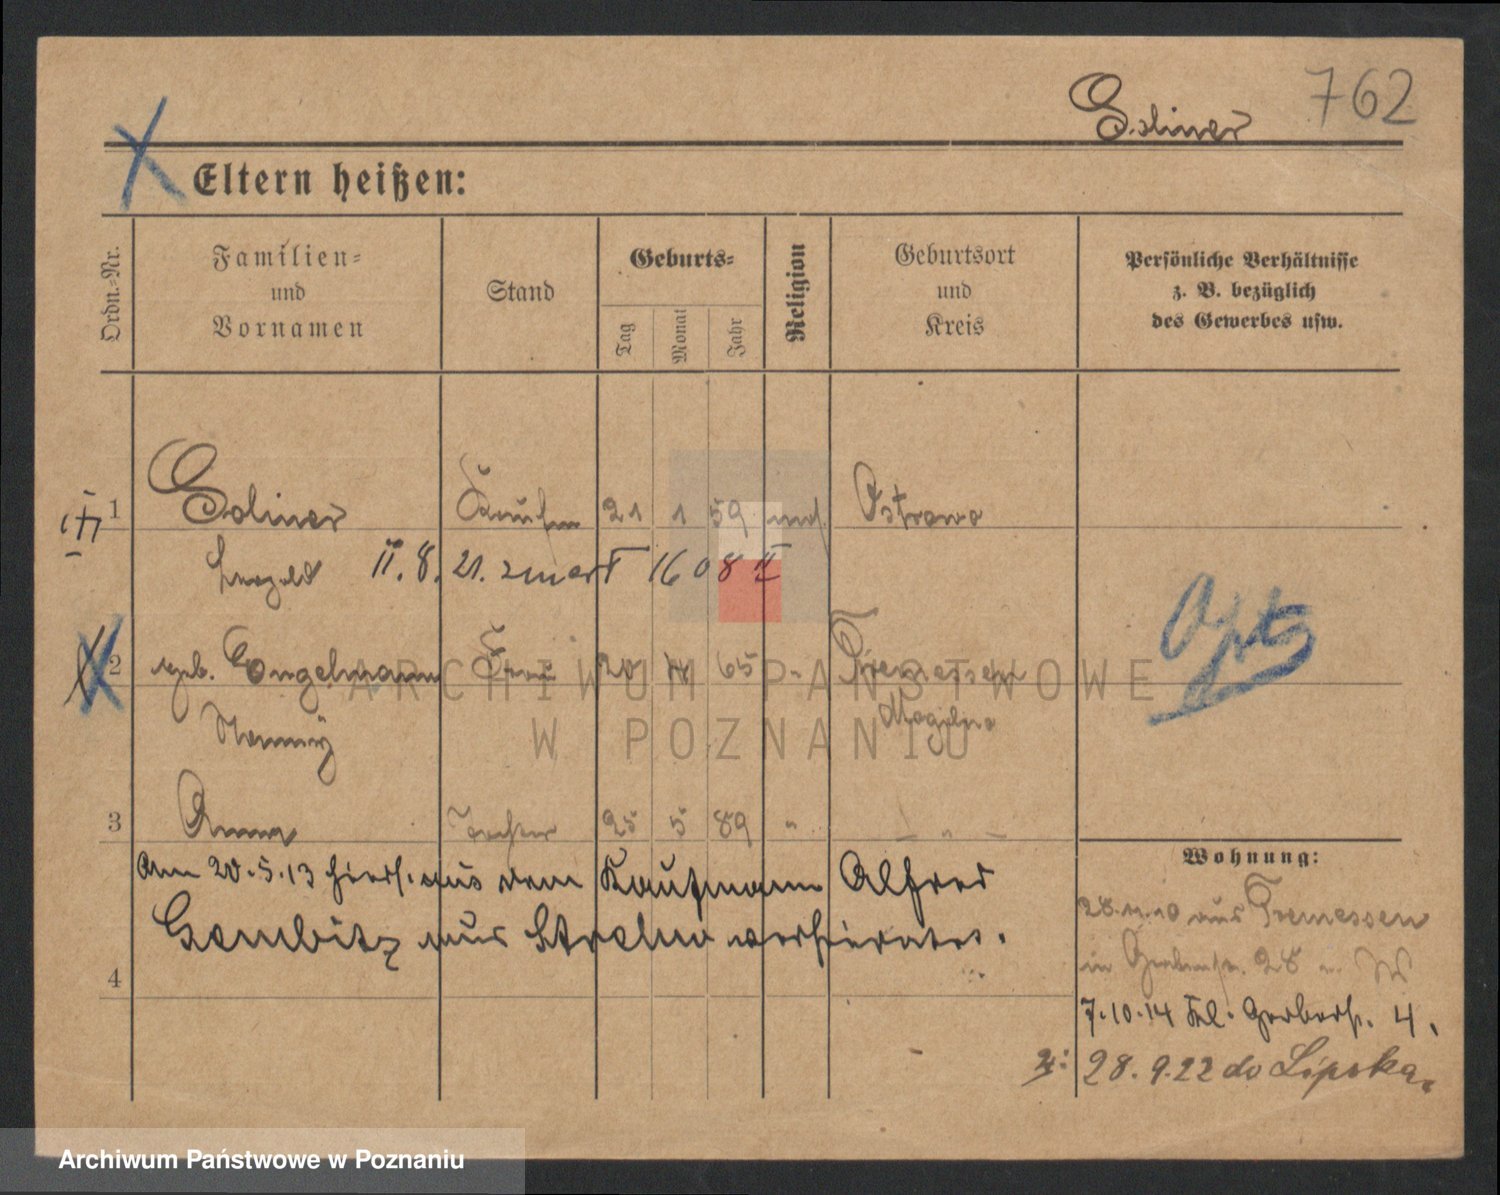 Soliner 762
Eltern heißen:
Ordn.-Nr.
Familien-
und
Vornamen
Stand
Geburts-
Tag
Monat
Jahr
Religion
Geburtsort
und
Kreis
Persönliche Verhältnisse
z. B. bezüglich
des Gewerbes usw.
1 Soliner Kaufm 21 1 59 Ostrowo
Leopold II. 8. 21. zmarł 16 08 II
2 geb. Engelmann Frau 20 65 " Tremessen
Nanny Mogilno
3 Anna Tochter 25 5 89 " — " —
Am 20.5.13 hiers. aus dem Kaufmann Alfred
Gembitz aus Strelno verheiratet.
4
Wohnung:
28.11.10 aus Tremessen
in 28
7.10.14 Kl. Gerberstr. 4.
28.9.22 do Lipska
ARCHIWUM PAŃSTWOWE
W POZNANIU
Archiwum Państwowe w Poznaniu